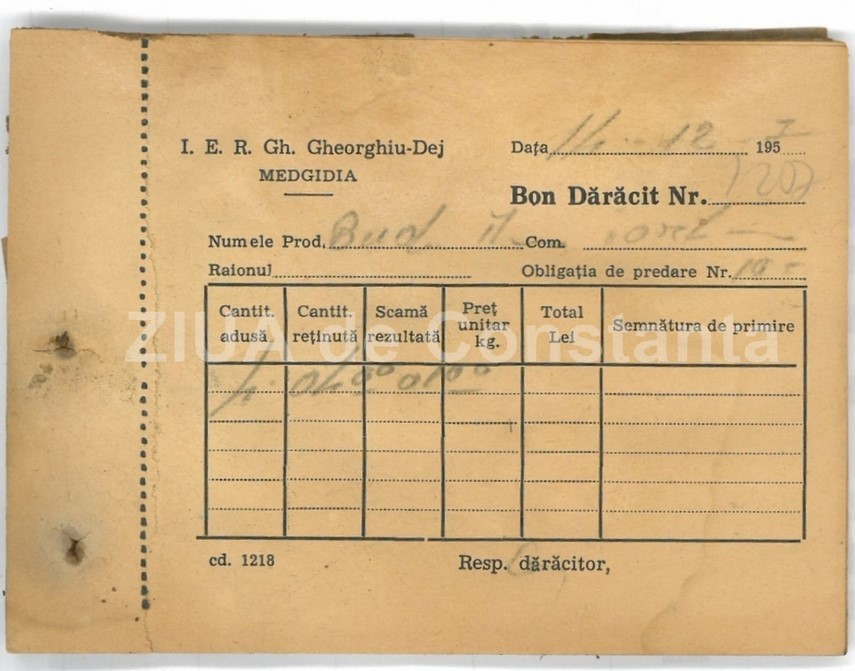 I. E. R. Gh. Gheorghiu-Dej
MEDGIDIA
Data 14 - 12 - 195
Bon Dărăcit Nr.
Numele Prod. Bud Com.
Raionul Obligația de predare Nr.
Cantit. adusă Cantit. reținută Scamă rezultată Preț unitar kg. Total Lei Semnătura de primire
ZIUA de Constanta
cd. 1218 Resp. dărăcitor,